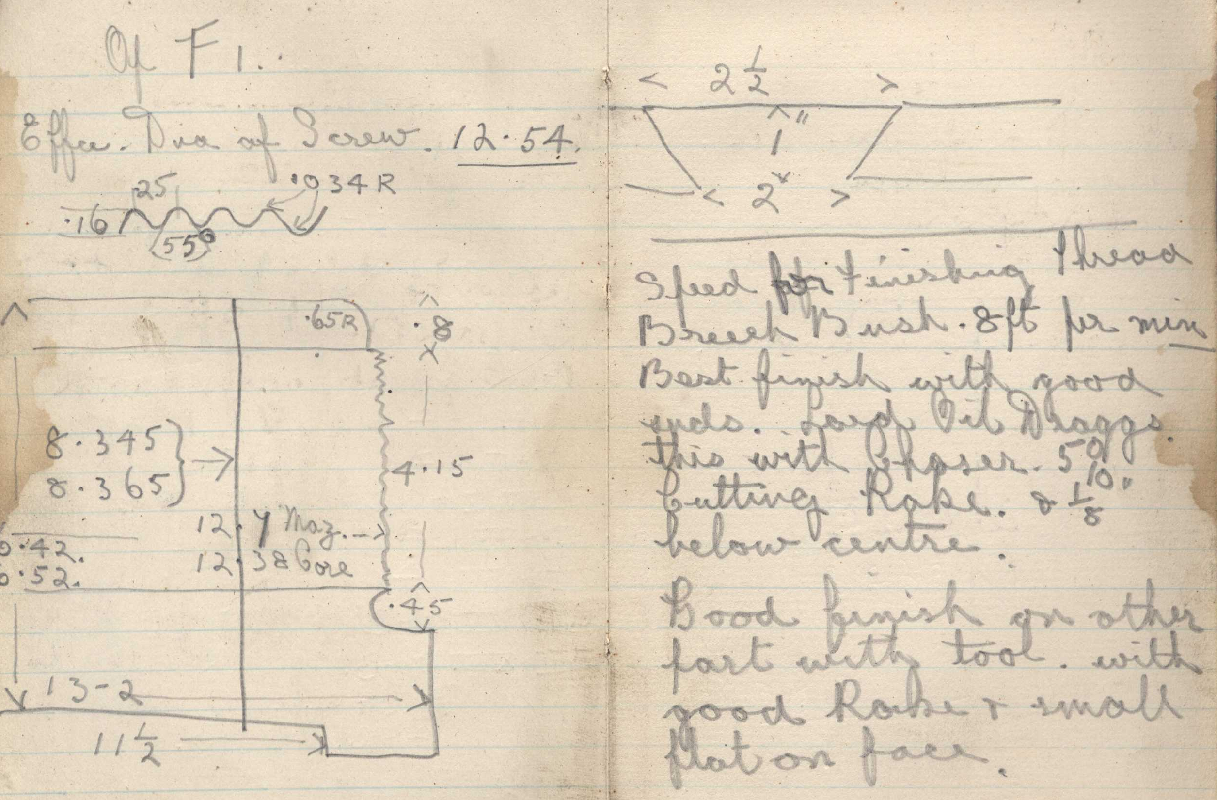 Of F1..
Effec. Dia of Screw. 12.54.
.25 .034 R
.16
55°
.65R .8
8.345
8.365
4.15
12.7 Maz.
12.38 Core
6.42.
6.52.
.45
13-2
11 1/2
2 1/2
1"
2"
Speed for Finishing Thread
Breech Bush. 8ft per min
Best finish with good
suds. Lard Oil Draggs.
this with Chaser. 5° or 10°
Cutting Rake. & 1/8"
below centre.
Good finish on other
part with tool. with
good Rake & small
flat on face.